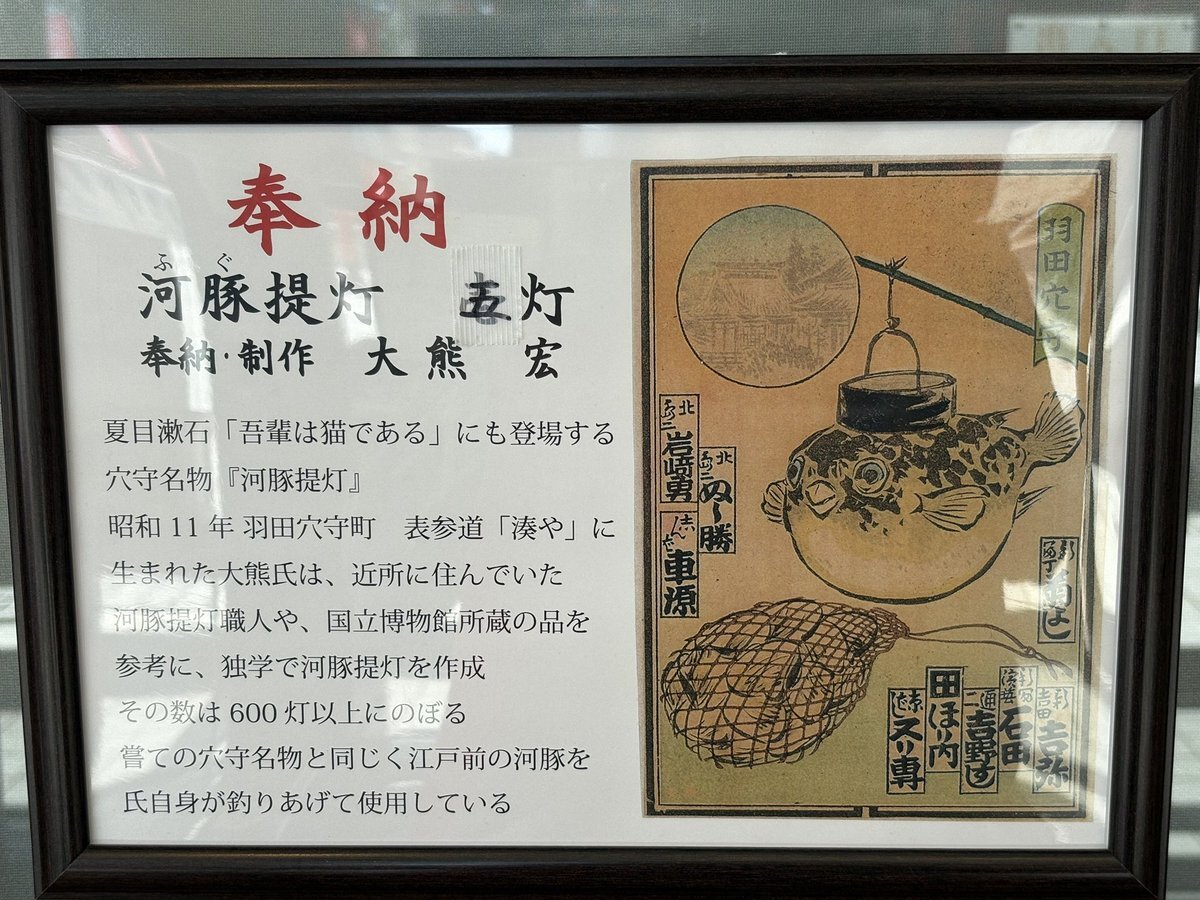 奉納
ふぐ
河豚提灯 五灯
奉納・制作 大熊 宏
夏目漱石「吾輩は猫である」にも登場する
穴守名物『河豚提灯』
昭和11年 羽田穴守町 表参道「湊や」に
生まれた大熊氏は、近所に住んでいた
河豚提灯職人や、国立博物館所蔵の品を
参考に、独学で河豚提灯を作成
その数は600灯以上にのぼる
嘗ての穴守名物と同じく江戸前の河豚を
氏自身が釣りあげて使用している
羽田穴守
岩﨑勇
ぬし勝
車源
吉弥
石田
吉野す
田ほり内
スリ専